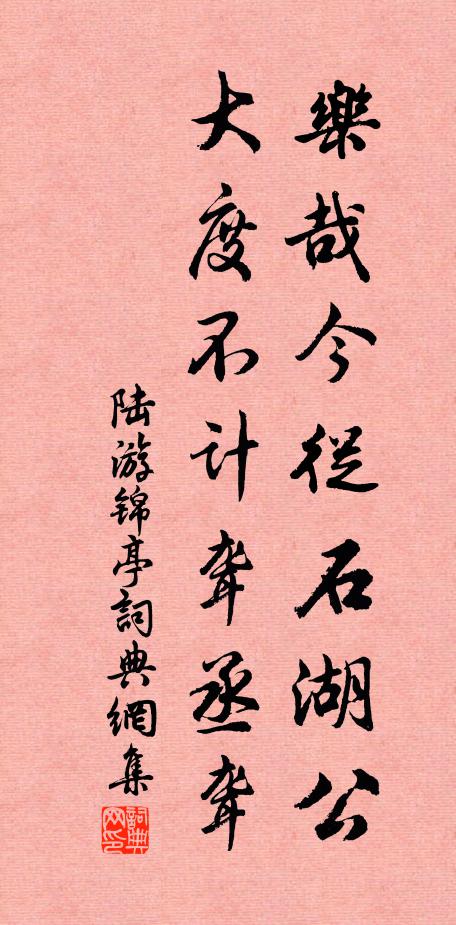 樂哉今從石湖公
大度不计聋丞聋
陆游锦亭詞典網集
詞典网印